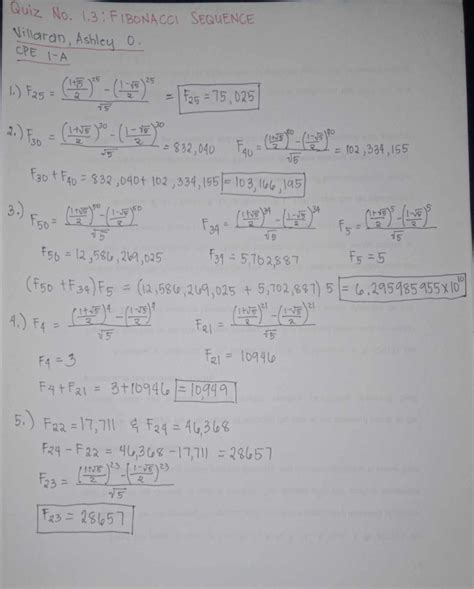 Quiz No. 1.3: FIBONACCI SEQUENCE
Villaran, Ashley O.
CPE 1-A
1.) F25 = ((1+√5)/2)^25 - ((1-√5)/2)^25 / √5 = F25 = 75,025
2.) F30 = ((1+√5)/2)^30 - ((1-√5)/2)^30 / √5 = 832,040 F40 = ((1+√5)/2)^40 - ((1-√5)/2)^40 / √5 = 102,334,155
F30 + F40 = 832,040 + 102,334,155 = 103,166,195
3.) F50 = ((1+√5)/2)^50 - ((1-√5)/2)^50 / √5 F34 = ((1+√5)/2)^34 - ((1-√5)/2)^34 / √5 F5 = ((1+√5)/2)^5 - ((1-√5)/2)^5 / √5
F50 = 12,586,269,025 F34 = 5,702,887 F5 = 5
(F50 + F34) F5 = (12,586,269,025 + 5,702,887) 5 = 6.295985955 x 10^10
4.) F4 = ((1+√5)/2)^4 - ((1-√5)/2)^4 / √5 F21 = ((1+√5)/2)^21 - ((1-√5)/2)^21 / √5
F4 = 3 F21 = 10946
F4 + F21 = 3 + 10946 = 10949
5.) F22 = 17,711 & F24 = 46,368
F24 - F22 = 46,368 - 17,711 = 28657
F23 = ((1+√5)/2)^23 - ((1-√5)/2)^23 / √5
F23 = 28657